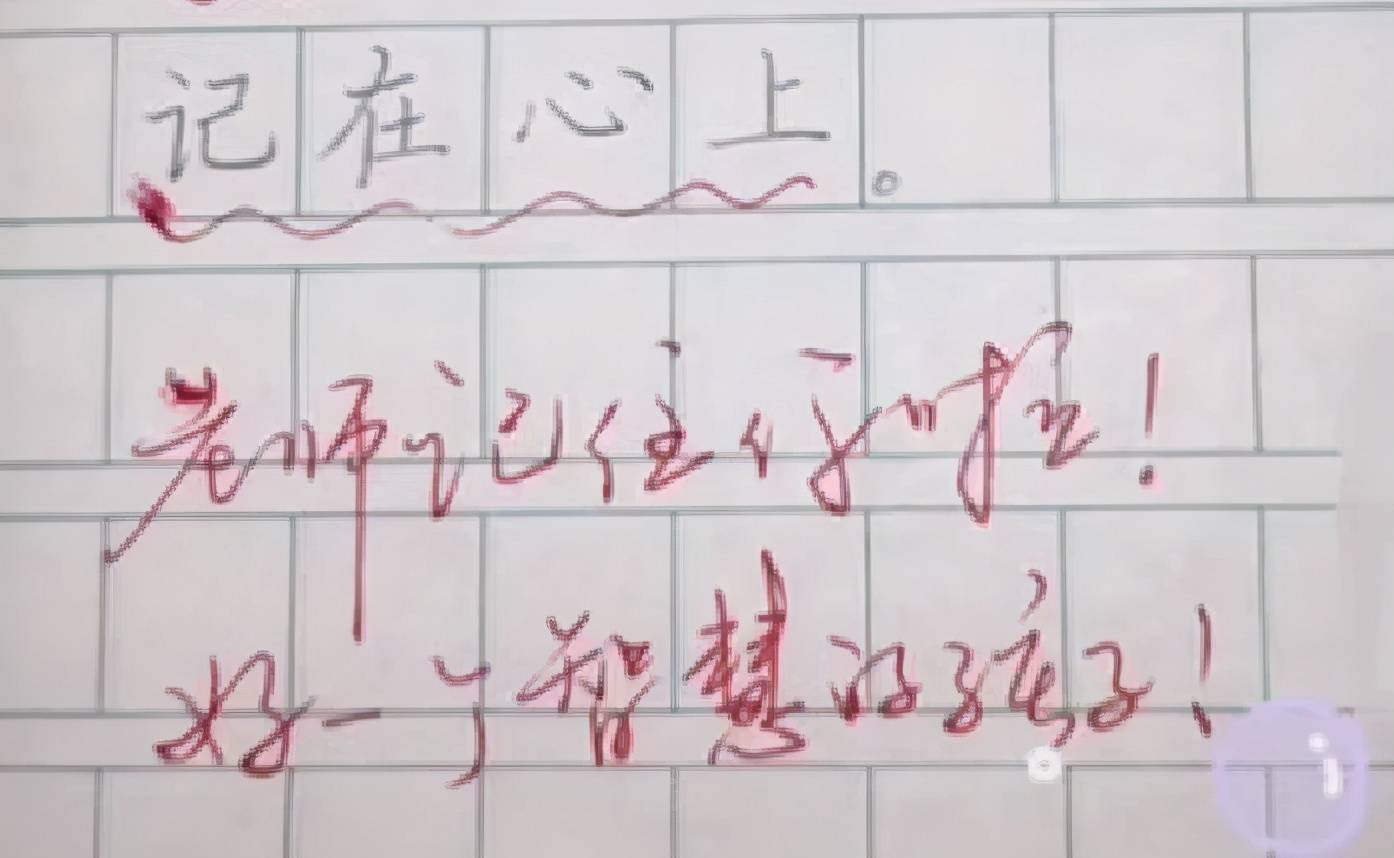 记在心上。
老师记住你啦！
好一个智慧的孩子！